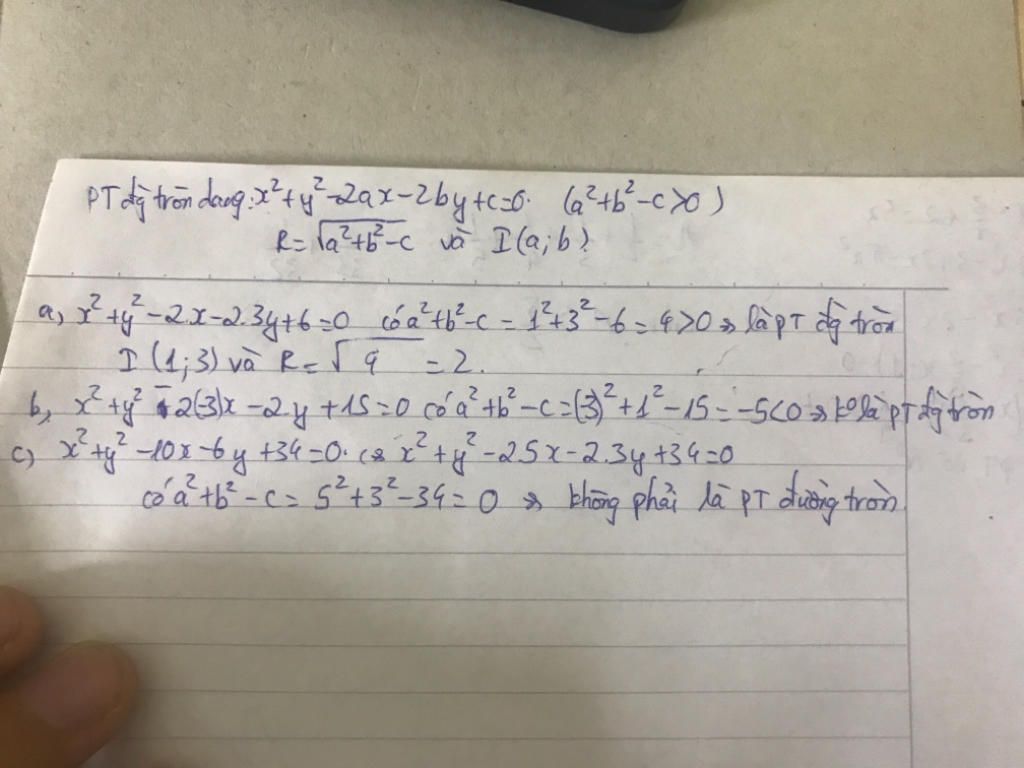 PT đg tròn dạng: x²+y²-2ax-2by+c=0. (a²+b²-c>0)
R=√a²+b²-c và I(a;b)
a, x²+y²-2.x-2.3y+6=0 có a²+b²-c=1²+3²-6=4>0 => là PT đg tròn
I(1;3) và R=√4 =2.
b, x²+y²-2(-3)x-2y+15=0 có a²+b²-c=(-3)²+1²-15=-5<0 => ko là PT đg tròn
c) x²+y²-10x-6y+34=0. <=> x²+y²-2.5x-2.3y+34=0
có a²+b²-c=5²+3²-34=0 => không phải là PT đường tròn